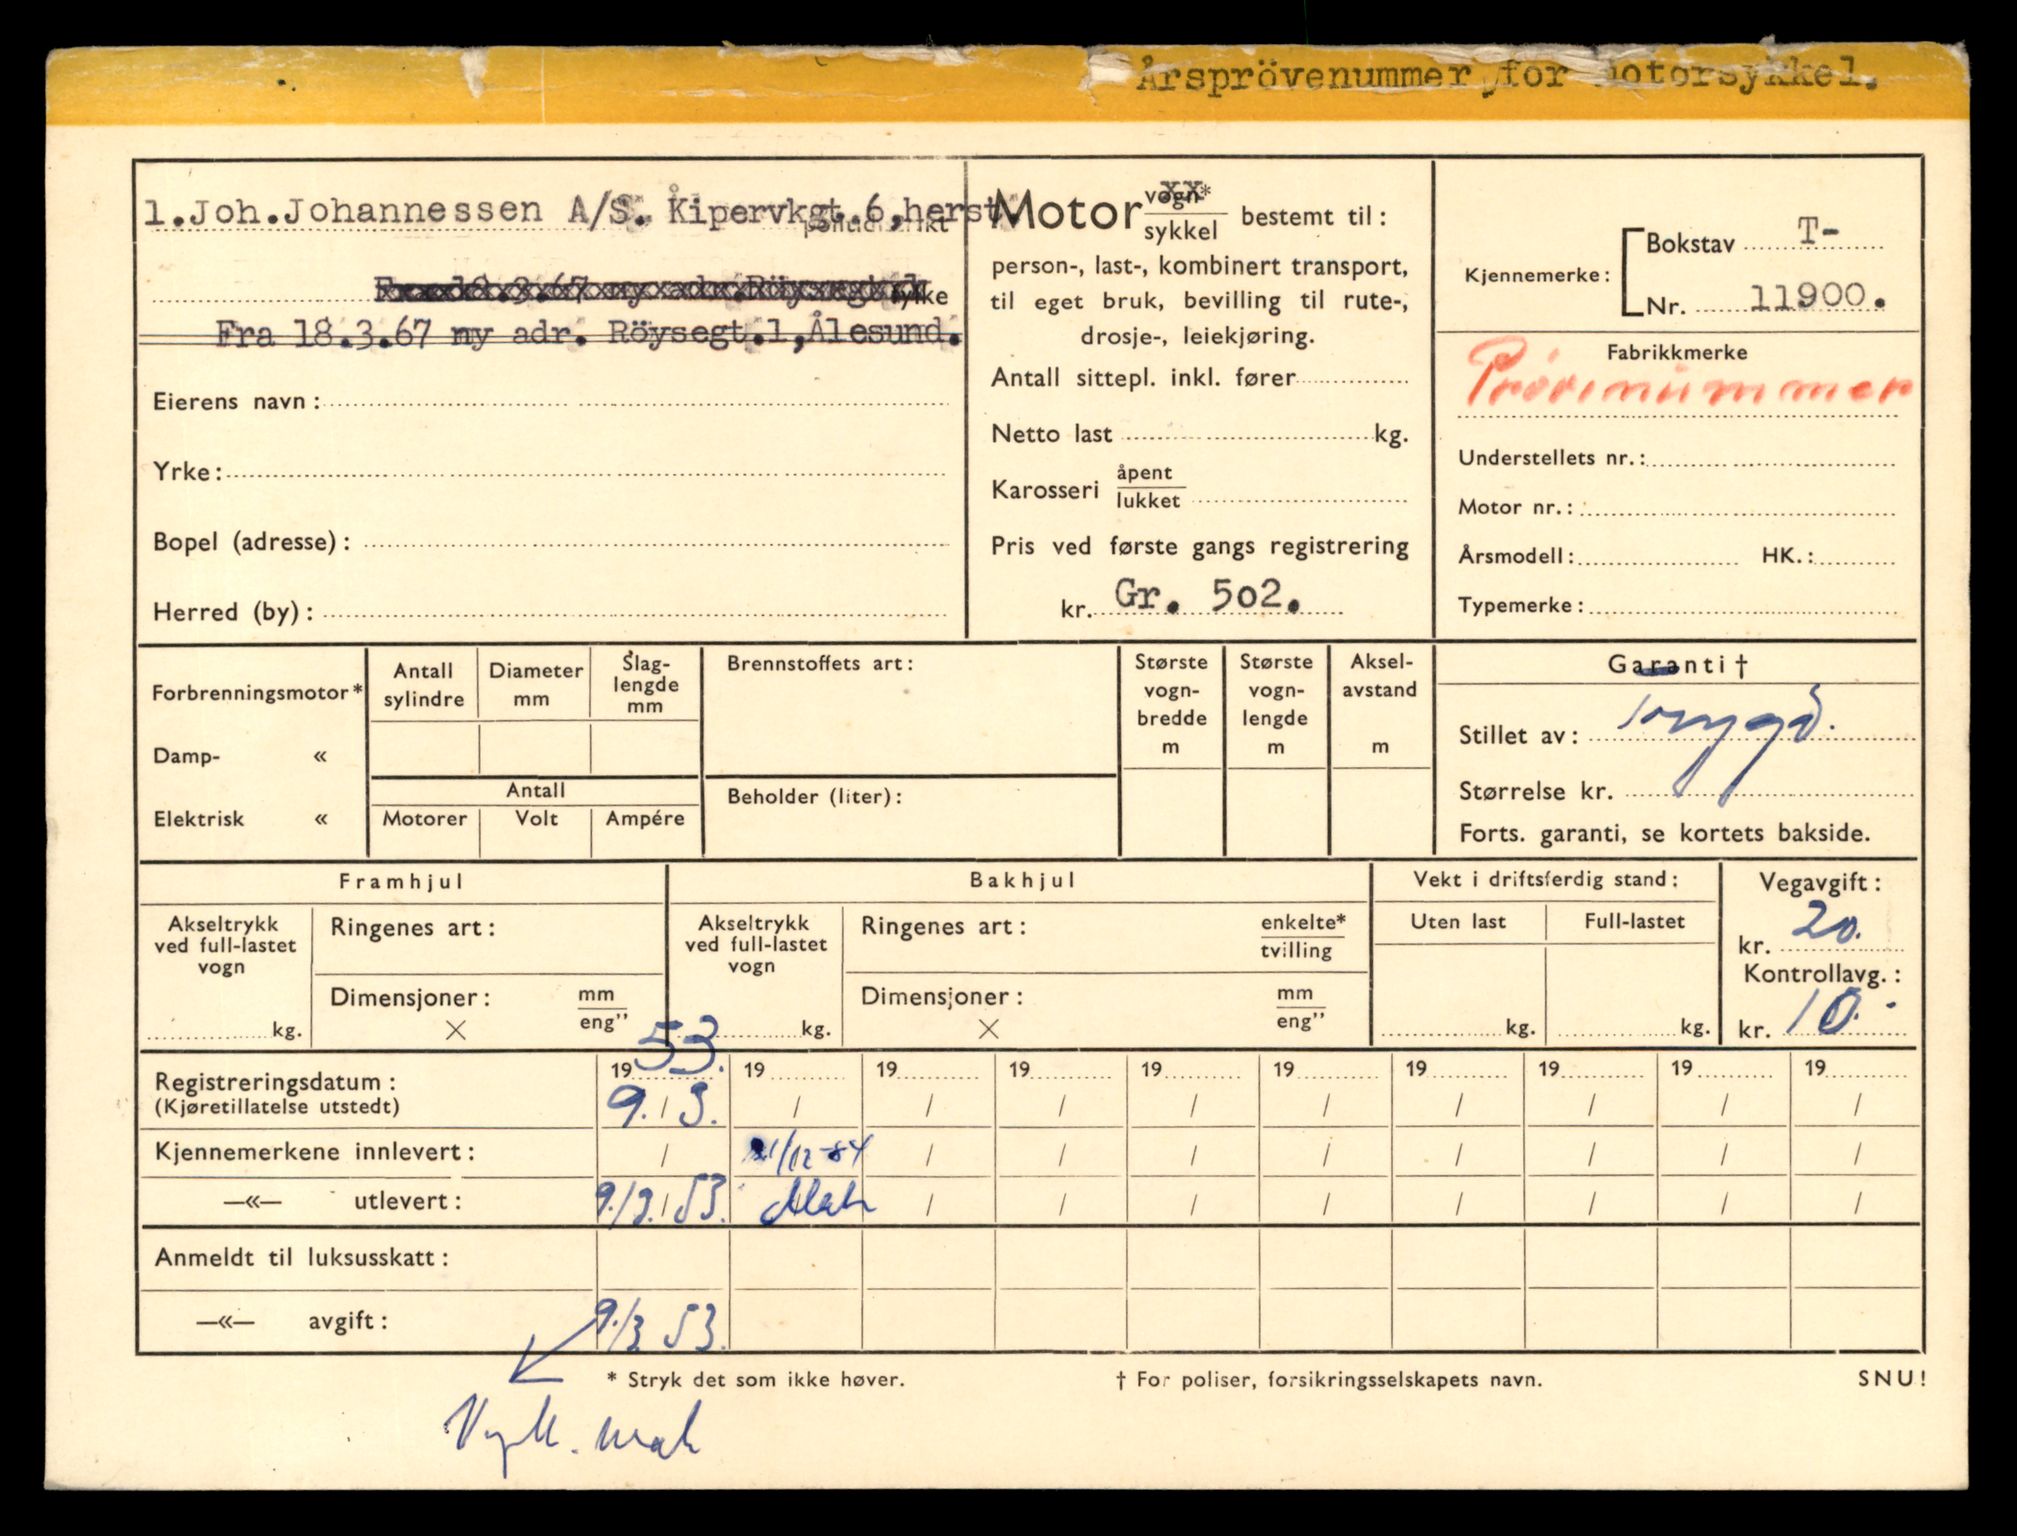 Årsprövenummer for motorsykkel.
1.Joh.Johannessen A/S. Kipervkgt.6,herst.
politidistrikt
Fra 18.3.67 ny adr. Röysegt 1
fylke
Fra 18.3.67 ny adr. Röysegt.1,Ålesund.
Eierens navn:
Yrke:
Bopel (adresse):
Herred (by):
Motor vogn* / sykkel bestemt til:
person-, last-, kombinert transport,
til eget bruk, bevilling til rute-,
drosje-, leiekjøring.
Antall sittepl. inkl. fører
Netto last kg.
Karosseri åpent / lukket
Pris ved første gangs registrering
kr. Gr. 502.
Kjennemerke: Bokstav T-
Nr. 11900.
Fabrikkmerke
Prøvenummer
Understellets nr.:
Motor nr.:
Årsmodell: HK.:
Typemerke:
Forbrenningsmotor*
Damp- «
Elektrisk «
Antall sylindre
Diameter mm
Slag-lengde mm
Antall
Motorer Volt Ampére
Brennstoffets art:
Beholder (liter):
Største vogn-bredde m
Største vogn-lengde m
Aksel-avstand m
Garanti †
Stillet av: Trygd.
Størrelse kr.
Forts. garanti, se kortets bakside.
Framhjul
Akseltrykk ved full-lastet vogn
kg.
Ringenes art:
Dimensjoner: mm / eng"
×
Bakhjul
Akseltrykk ved full-lastet vogn
kg.
Ringenes art: enkelte* / tvilling
Dimensjoner: mm / eng"
×
Vekt i driftsferdig stand:
Uten last Full-lastet
kg. kg.
Vegavgift:
kr. 20.
Kontrollavg.:
kr. 10.-
1953. 19 19 19 19 19 19 19 19 19
Registreringsdatum: 9./3. / / / / / / / / /
(Kjøretillatelse utstedt)
Kjennemerkene innlevert: / 21/12-84 / / / / / / / /
—«— utlevert: 9./3. 53. / / / / / / / /
Anmeldt til luksusskatt:
—«— avgift: 9./3 53.
* Stryk det som ikke høver.
† For poliser, forsikringsselskapets navn.
SNU!